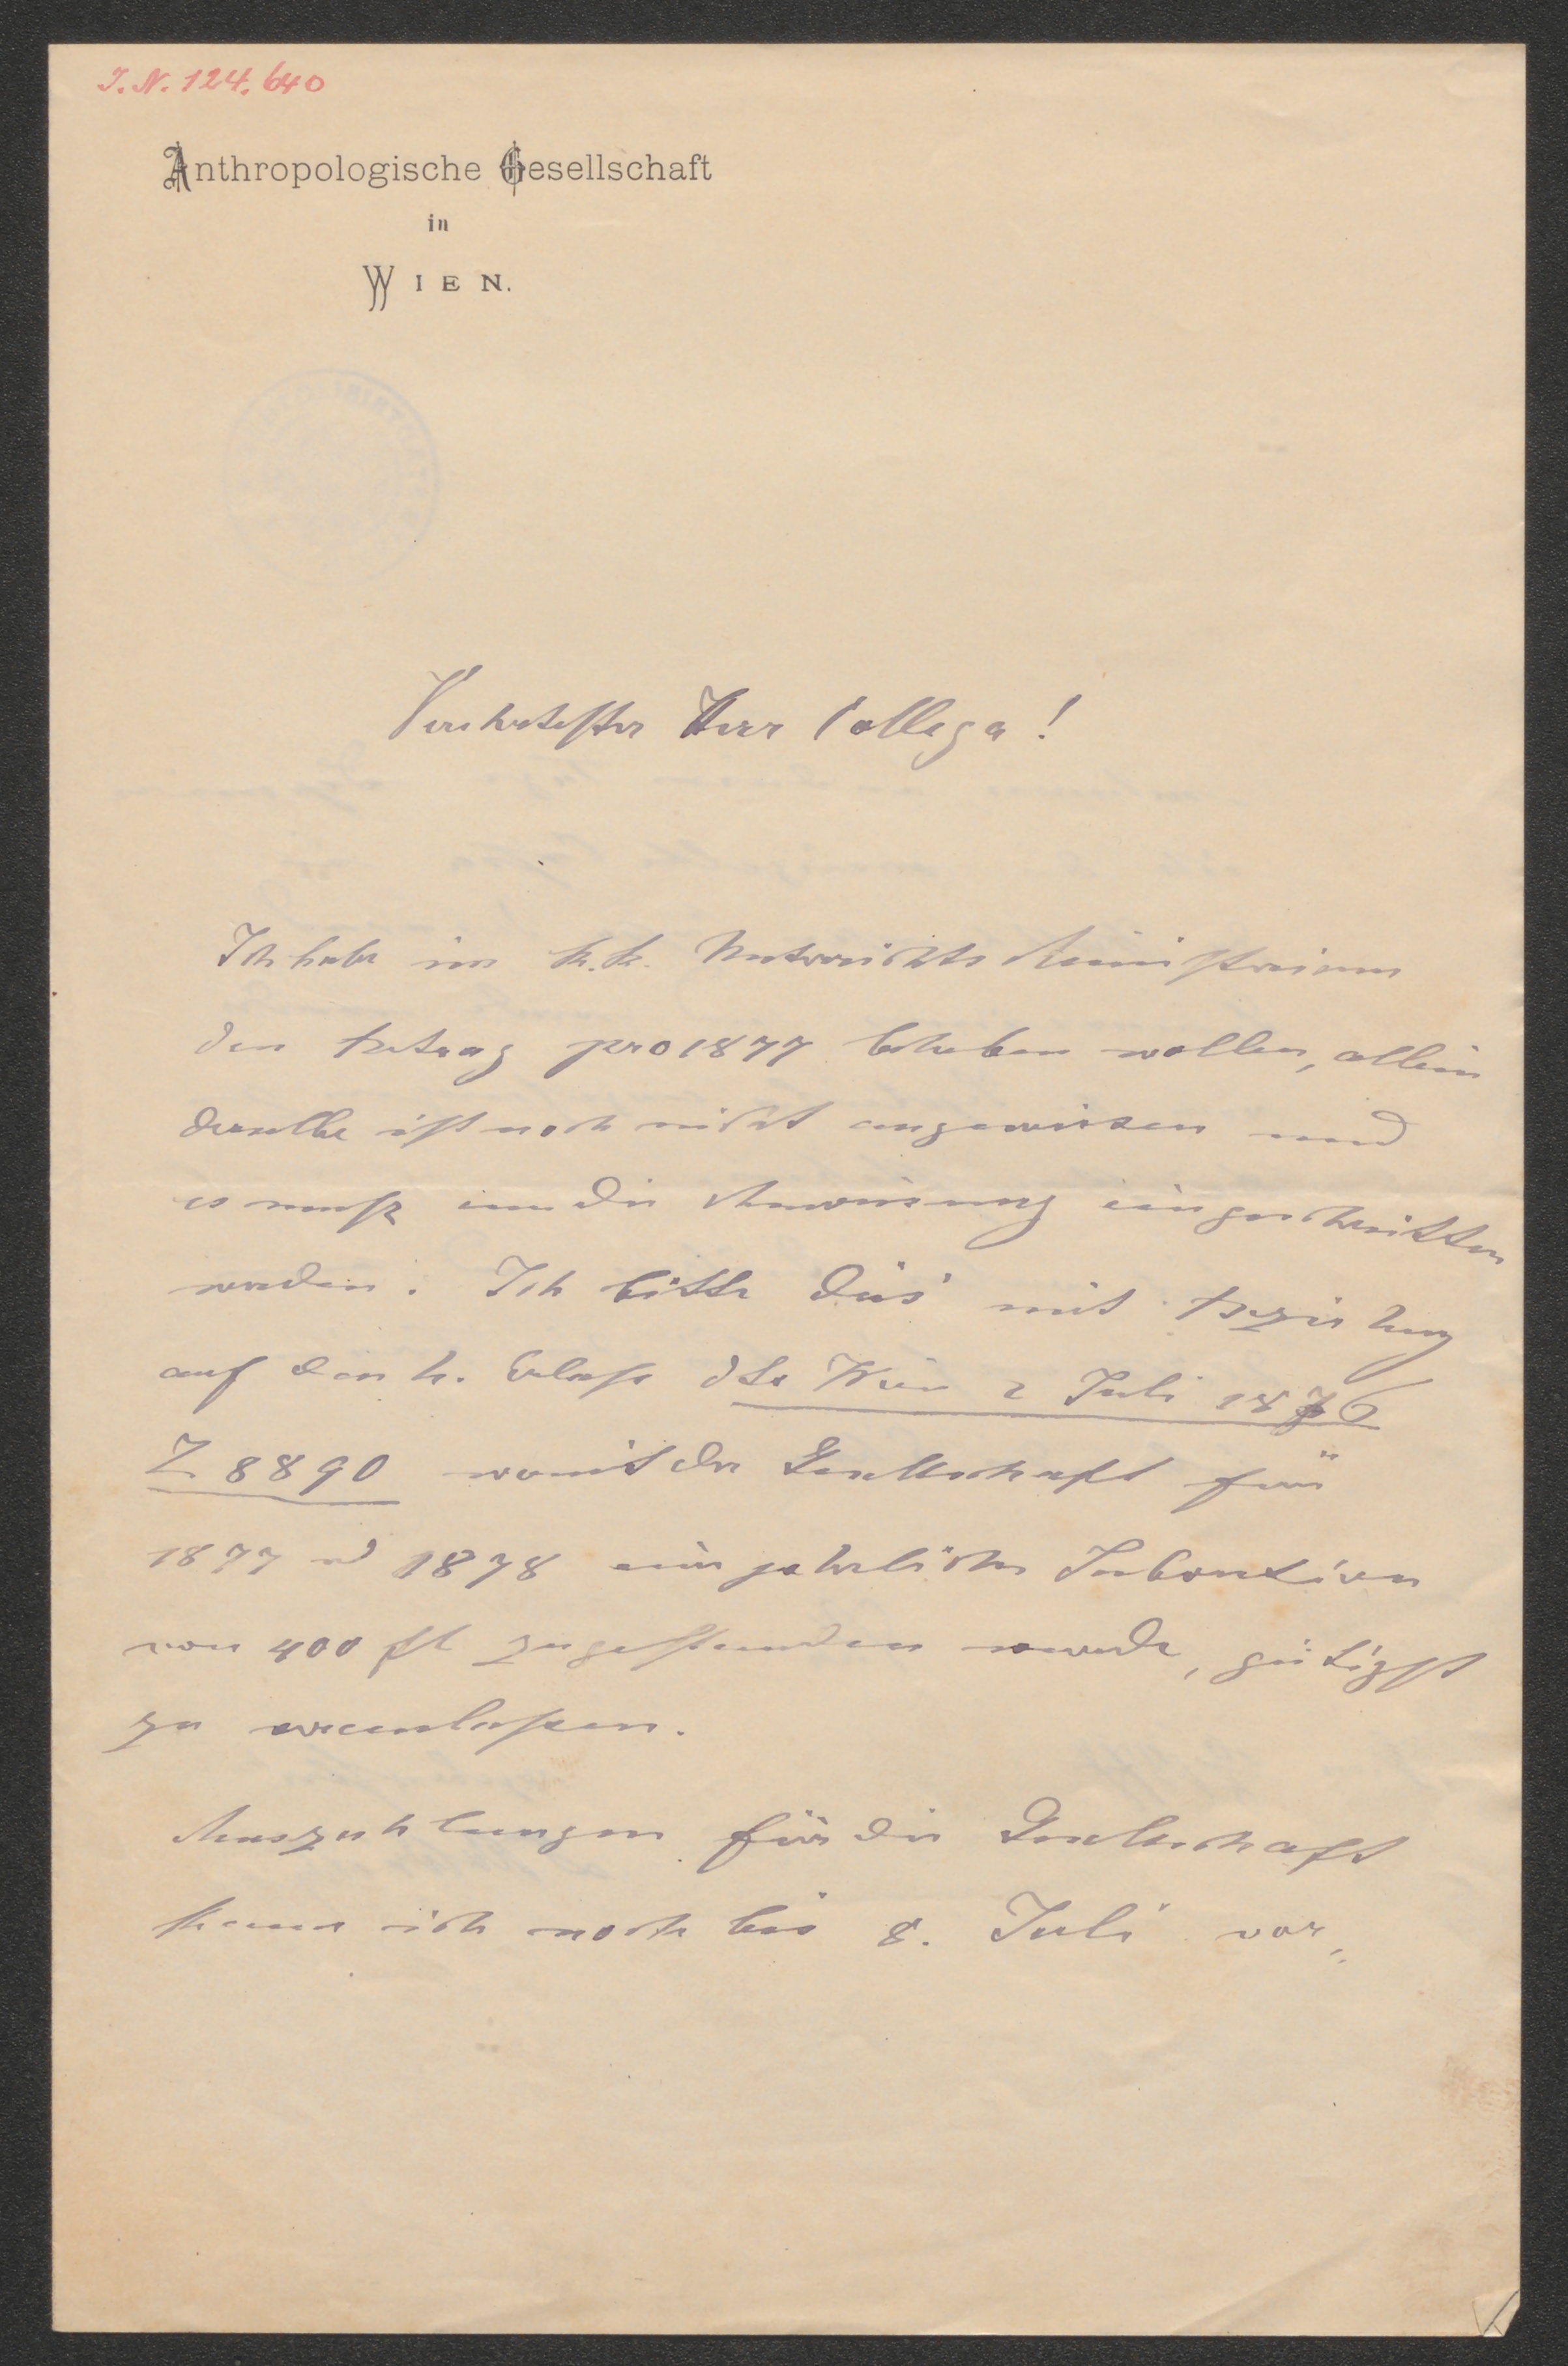 I.N. 124.640
Anthropologische Gesellschaft
in
WIEN.
Verehrtester Herr Collega!
Ich habe im k.k. Unterrichts Ministerium
den Betrag pro 1877 beheben wollen, allein
derselbe ist noch nicht angewiesen und
es muß um die Anweisung eingeschritten
werden. Ich bitte dies mit Beziehung
auf den h. Erlaß dto Wien 2 Juli 1876
Z 8890 womit der Gesellschaft für
1877 u 1878 eine jahrliche Subvention
von 400 fl zugestanden wurde, gütigst
zu veranlaßen.
Auszahlungen für die Gesellschaft
kann ich noch bis 8. Juli vor„